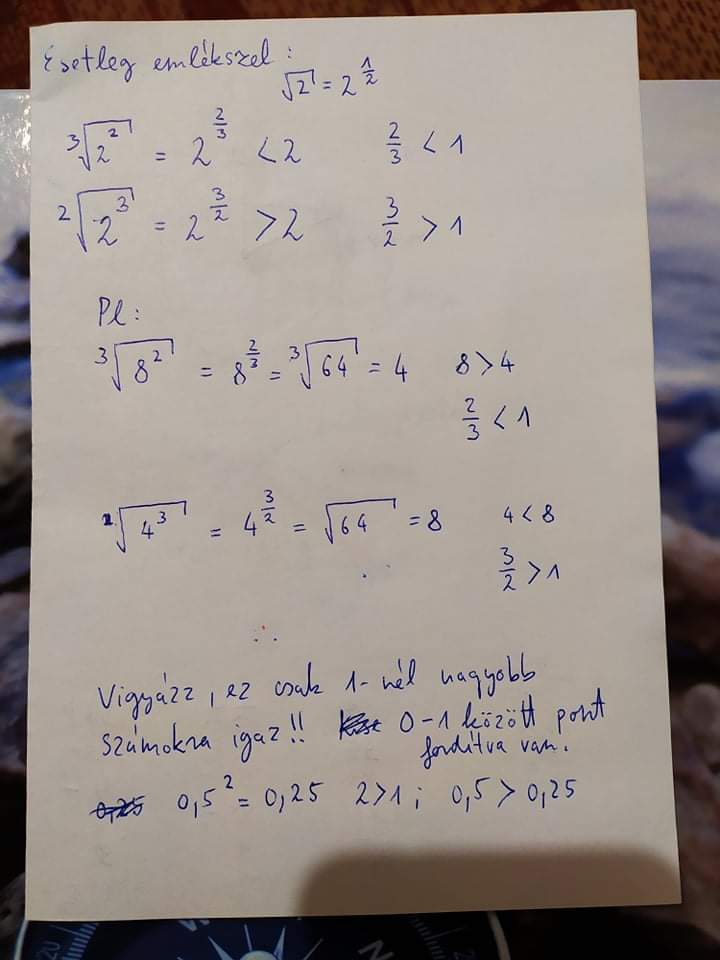 Esetleg emlékszel:
√2 = 2^(1/2)
³√(2²) = 2^(2/3) < 2 2/3 < 1
²√(2³) = 2^(3/2) > 2 3/2 > 1
Pl:
³√(8²) = 8^(2/3) = ³√64 = 4 8 > 4
2/3 < 1
²√(4³) = 4^(3/2) = √64 = 8 4 < 8
3/2 > 1
Vigyázz, ez csak 1-nél nagyobb
számokra igaz!! 0-1 között pont
fordítva van.
0,5² = 0,25 2 > 1; 0,5 > 0,25
20
W
N
2